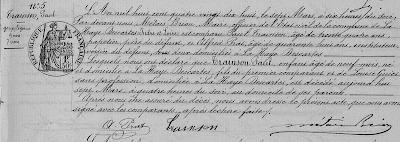 N° 5
Trainson, Paul
RÉPUBLIQUE FRANÇAISE
L'An mil huit cent quatre vingt dix huit, le sept Mars, à six heures du soir,
Par devant nous Métais Brian Maire officier de l'État civil de la commune de La
Haye Descartes Indre et Loire ont comparu Paul Trainson, âgé de trente quatre ans,
père du défunt, et Alfred Pirat, âgé de quarante huit ans, instituteur,
voisin du défunt, à La Haye Descartes
Lesquels nous ont déclaré que Trainson Paul, enfant âgé de neuf mois, né
et domicilié à La Haye Descartes, fils du premier comparant et de Louise
sans profession, domiciliés à La Haye Descartes, est décédé aujourd'hui
sept Mars, à quatre heures du soir, au domicile de ses parents.
Après nous être assuré du décès, nous avons dressé le présent acte que nous avons
signé avec les comparants, après lecture faite.
A. Pirat Trainson